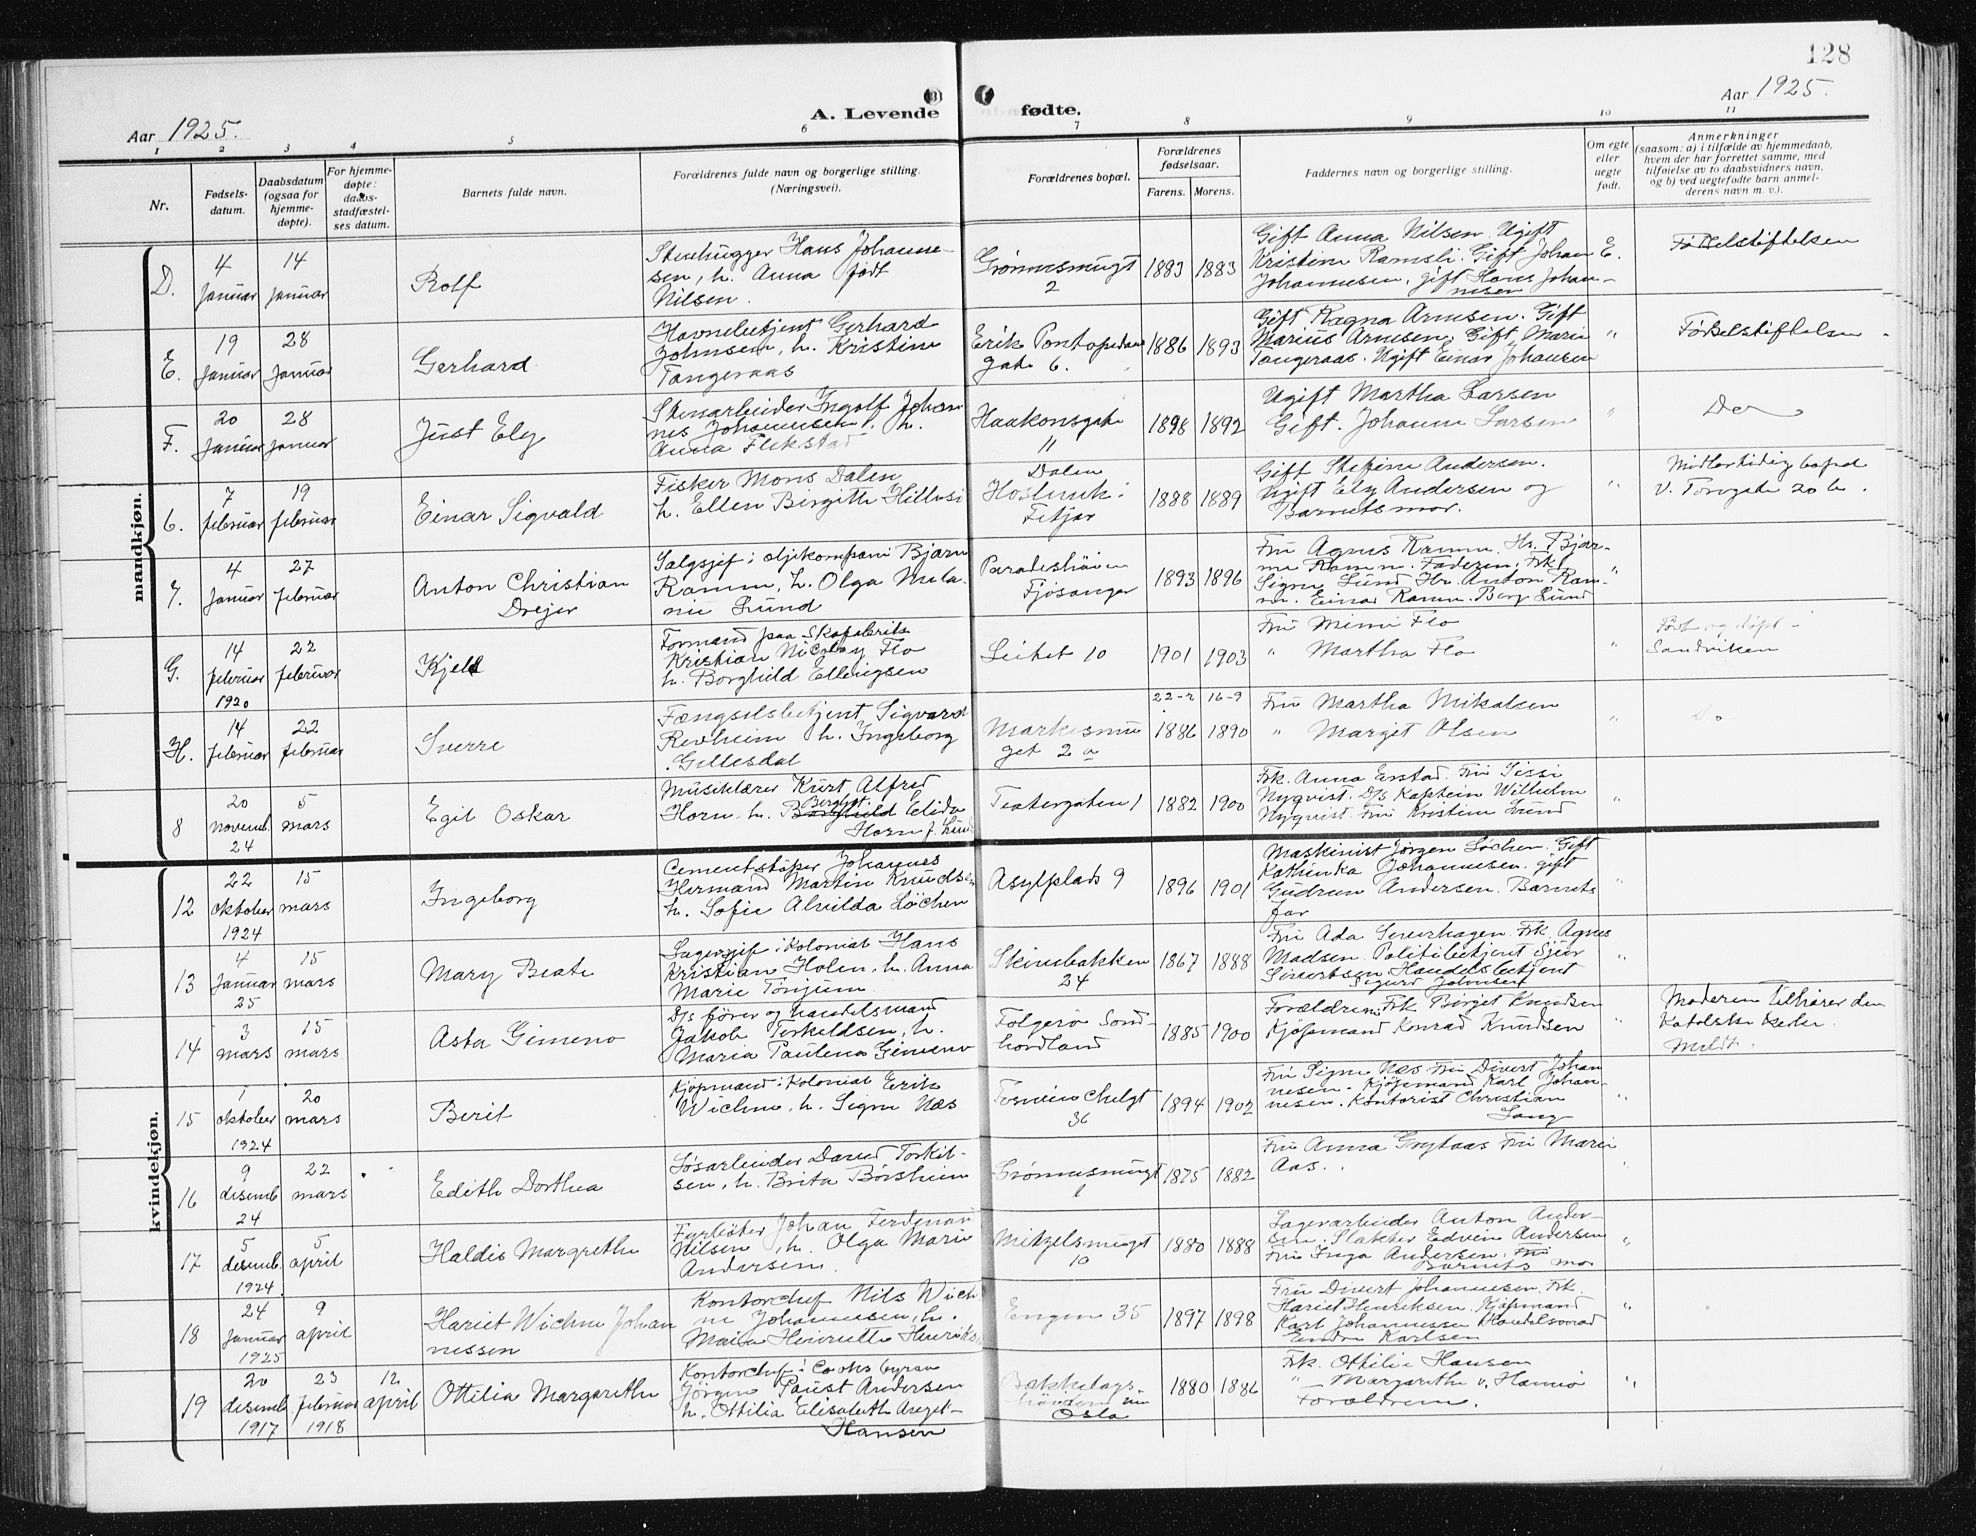 128
Aar 1925.
A. Levende fødte.
Aar 1925.
1 2 3 4 5 6 7 8 9 10 11
Nr.
Fødsels-
datum.
Daabsdatum
(ogsaa for
hjemme-
døpte).
For hjemme-
døpte:
daabs-
stadfæstel-
ses datum.
Barnets fulde navn.
Forældrenes fulde navn og borgerlige stilling.
(Næringsvei).
Forældrenes bopæl.
Forældrenes
fødselsaar.
Farens. Morens.
Faddernes navn og borgerlige stilling.
Om egte
eller
uegte
født.
Anmerkninger
(saasom: a) i tilfælde av hjemmedaab,
hvem der har forrettet samme, med
tilføielse av to daabsvidners navn,
og b) ved uegtefødte barn anmel-
derens navn m. v.).
mandkjøn.
D.
4
januar
14
januar
Rolf
Stenhugger Hans Johanne-
sen, h. Anna født
Nilsen.
Grønnesmugt
2
1883 1883
Gift Anna Nilsen. Ugift
Kristine Ramsli. Gift Johan
Johannesen, gift Hans Johan-
nesen
E.
Fødselsstiftelsen
E.
19
januar
28
januar
Gerhard
Havnebetjent Gerhard
Johnsen, h. Kristine
Tangeraas
Erik Pontopidans
gate 6.
1886 1893
Gift Ragna Arnesen. Gift
Marius Arnesen, Gift Marie
Tangeraas. Ugift Einar Johansen
"
Fødselsstiftelsen
F.
20
januar
28
januar
Just Ely
Stenarbeider Ingolf Johan
nes Johannesen, h.
Anna Flekstad
Haakonsgate
11
1898 1892
Ugift Martha Larsen
Gift. Johanne Larsen
"
Do
6.
7
februar
19
februar
Einar Sigvald
Fisker Mons Dalen
h. Ellen Birgitte
Dalen
Fitjar
1888 1889
Gift Stefine Andersen.
Ugift Ely Andersen og
Barnets mor.
"
Midlertidig bopæl
V. Torvgate 20 b.
7.
4
januar
27
februar
Anton Christian
Drejer
Salgsjef i oljekompani Bjarne
Ramm, h. Olga Mela-
nie Lund
Paradishøien
Fjøsanger
1893 1896
Fru Agnes Ramm. Hr. Bjar-
ne Ramm. Faderen. Frk.
Signe Lund Hr. Anton Ram-
m. Einar Ramm. Berg Lund
"
G.
14
februar
22
februar
Kjell
Formand paa Skofabrik
Kristian Nicolay Flo
h. Borghild Ellingsen
Leitet 10
1901 1903
Fru Mimi Flo
" Martha Flo
"
Født og døpt i
Sandviken
H.
1920
14
februar
22
februar
Sverre
Fængselsbetjent Sigvard
Revheim h. Ingeborg
Gillesdal
Markesmu
get 2 a
22-2 16-9
1886 1890
Fru Martha Mikalsen
" Marget Olsen
"
Do
8
20
novemb.
24
5
mars
Egil Oskar
Musiklærer Kurt Alfred
Horn. h. Borghild Elida
Horn f. Lund
Teatergaten 1
1882 1900
Frk. Anna Erstad. Fru Sissi
Nyqvist. D/s Kaptein Wilhelm
Nyqvist. Fru Kristine Lund
"
kvindekjøn.
12
22
oktober
1924
15
mars
Ingeborg
Cementstøper Johannes
Hermand Martin Knudsen
h. Sofie Alvilda Løchen
Asylplads 9
1896 1901
Maskinist Jørgen Løchen. Gift
Kathinka Johannesen. gift
Gudrun Andersen. Barnets
far
"
13
4
januar
25
15
mars
Mary Beate
Lagersjef i Kolonial Hans
Kristian Holen, h. Anna
Marie Tønjum
Skivebakken
24
1867 1888
Fru Ada Severhagen. Frk. Agnes
Madsen. Politibetjent Sjur
Sivertsen Handelsbetjent
Sigurd Johnsen
"
14
3
mars
15
mars
Asta Gimeno
D/s fører og handelsmand
Jakob Terkildsen, h.
Maria Paulena Gimeno
Folgerø Sønd-
hordland
1885 1900
Forældrene Frk Birget Knudsen
Kjøpmand Konrad Knudsen
"
Moderen tilhører den
Katolske kirke.
Meldt.
15
1
oktober
1924
20
mars
Berit
Kjøpmand i Kolonial Erik
Wichne, h. Signe Næs
36
1894 1902
Fru Signe Næs. Fru Divert Johan
nesen. Kjøpmand Karl Johan-
nesen. Kontorist Christian
Lang
"
16
9
desemb
24
22
mars
Edith Dorthea
Løsarbeider David Torkil-
sen, h. Brita Børsheim
Grønnesmugt
1
1875 1882
Fru Anna Grytaas Fru Marie
Aas.
"
17
5
desemb.
1924.
5
april
Haldis Margrethe
Fyrbøter Johan Ferdinan
Nilsen, h. Olga Marie
Andersen.
Mitzelsmugt
10
1880 1888
Lagerarbeider Anton Ander-
sen. Slakter Edvin Andersen
Fru Inga Andersen. Fru
Barnets mor
"
18
24
januar
1925
9
april
Hariet Wichne Johan
nessen
Kontorchef Nils Wich
ne Johannesen, h.
Maria Henriette Henriks.
Engen 35
1897 1898
Fru Divert Johannesen. Frk.
Hariet Henriksen. Kjøpmand
Karl Johannessen Handelsmand
Endre Karlsen
"
19
20
desemb.
1917
23
februar
1918
12
april
Ottilia Margarethe
Kontorchef i Cooks byraa
Jørgen Faust Andersen
h. Ottilia Elisabeth Aaget-
Hansen
Bakkelags-
Oslo
1880 1886
Frk. Ottilie Hansen
" Margarethe v. Hanno
Forældrene.
"